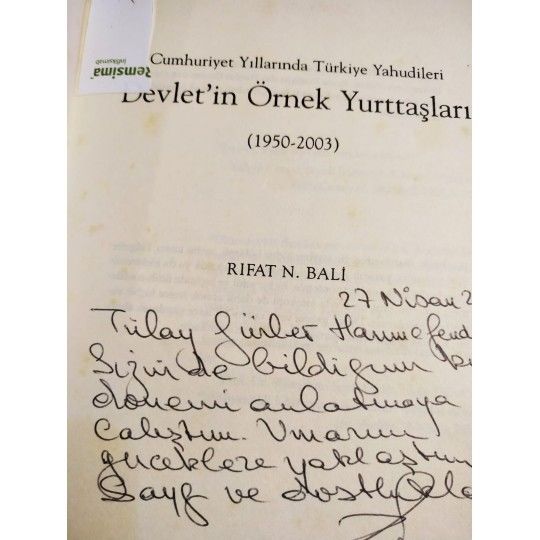 Remsima
infliksimab
Cumhuriyet Yıllarında Türkiye Yahudileri
Devlet'in Örnek Yurttaşları
(1950-2003)
RIFAT N. BALİ
27 Nisan 2
Tülay Gürler Hanımefend
Sizin de bildiğiniz
dönemi anlatmaya
Çalıştım. Umarım
gerçeklere yaklaştım
Saygı ve dostlukla